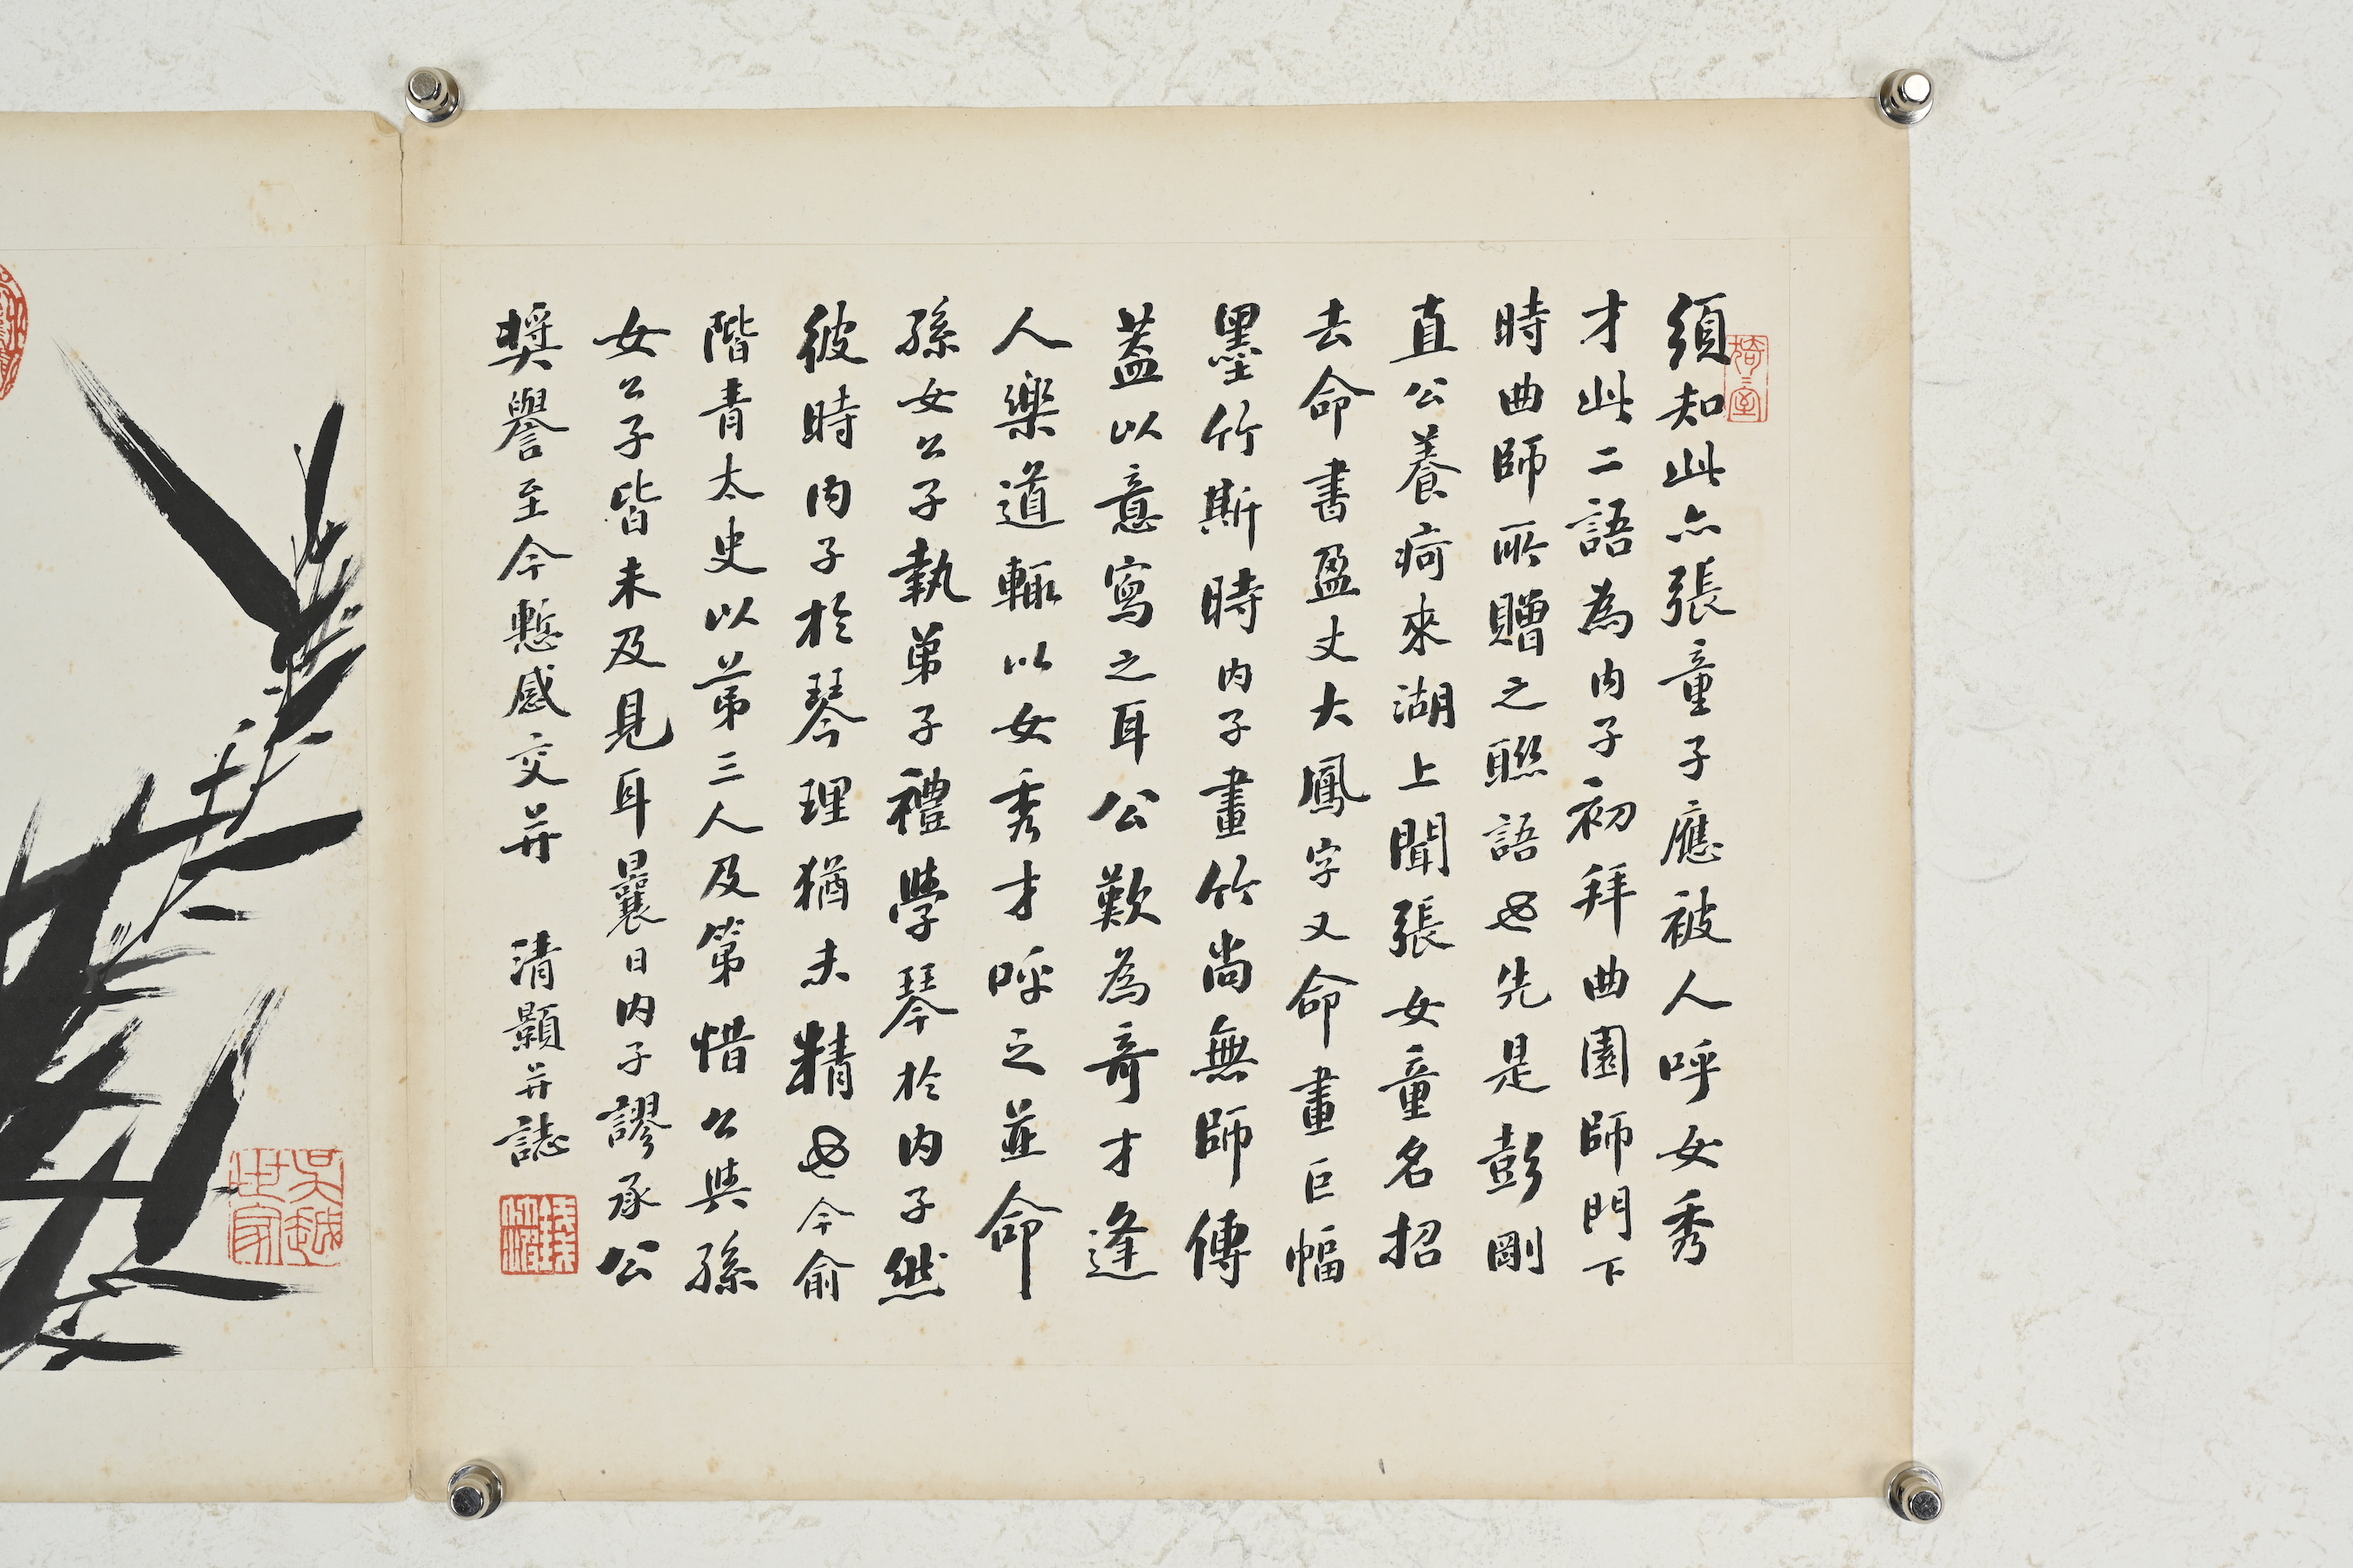 須知此亦張童子應被人呼女秀
才此二語為内子初拜曲園師門下
時曲師所贈之聯語也先是彭剛
直公養疴來湖上聞張女童名招
去命書盈丈大鳳字又命畫巨幅
墨竹斯時内子畫竹尚無師傳
蓋以意寫之耳公歎為奇才逢
人樂道輒以女秀才呼之並命
孫女公子執弟子禮學琴於内子然
彼時内子於琴理猶未精也今俞
階青太史以第三人及第惜公與孫
女公子皆未及見耳曩日内子謬承公
獎譽至今慙感交并 清顥并誌
吳越世家